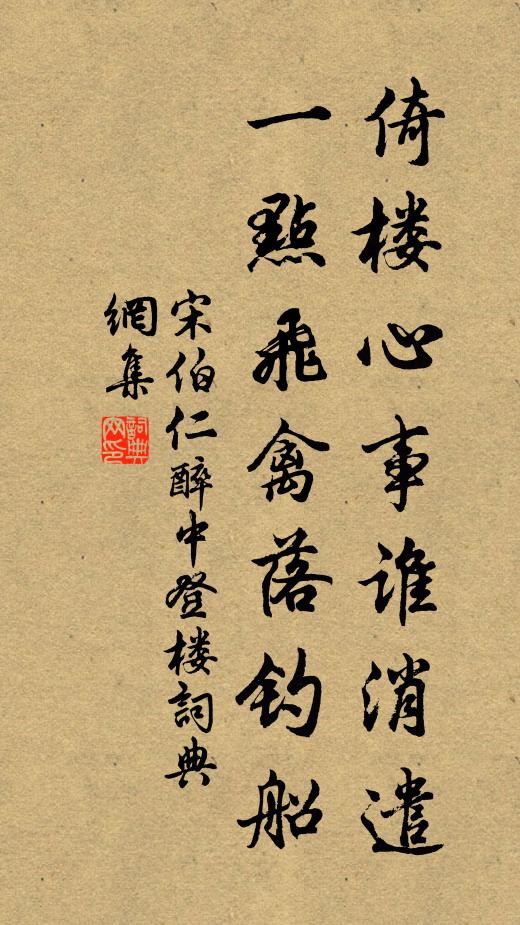 倚楼心事谁消遣
一點飛禽落钓船
宋伯仁醉中登楼詞典
網集
詞典
网印